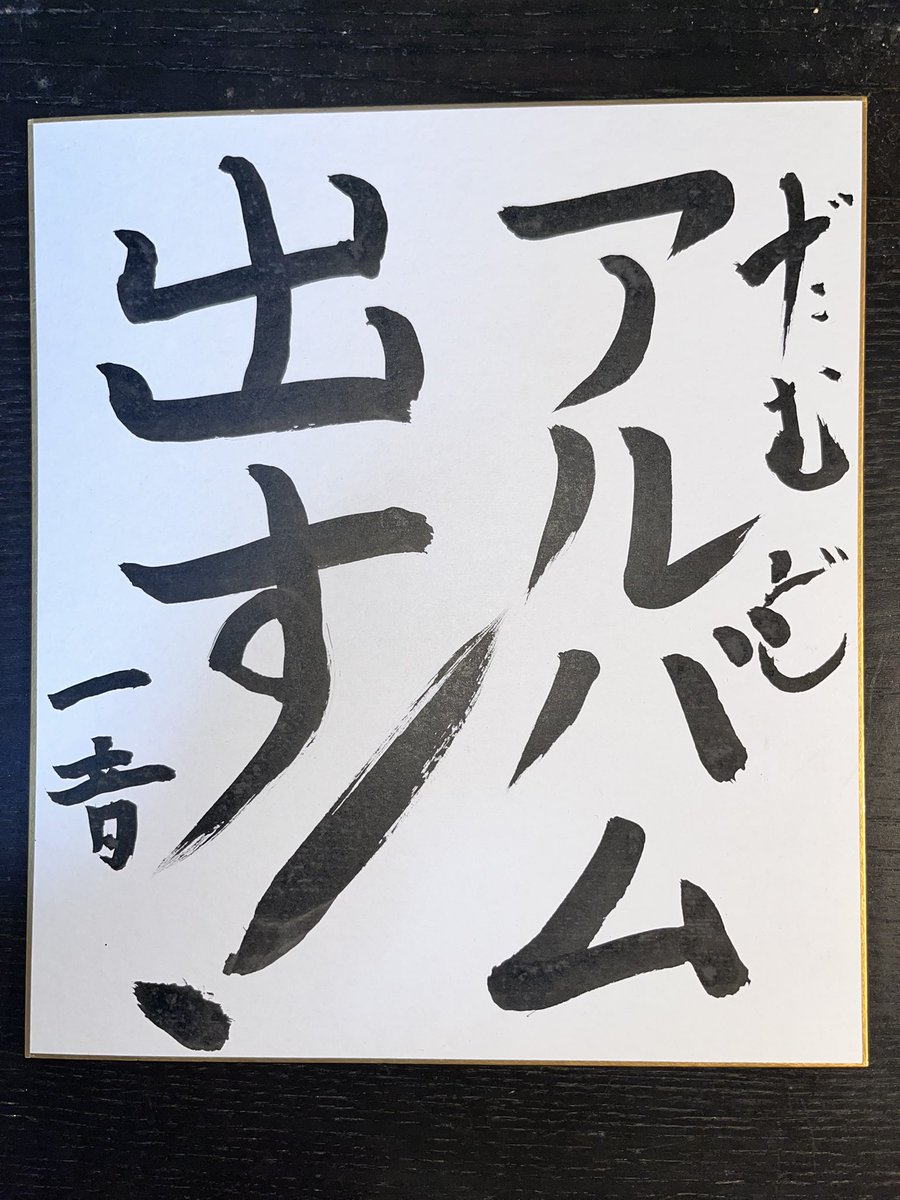 だむど
アルバム
出す!
一音